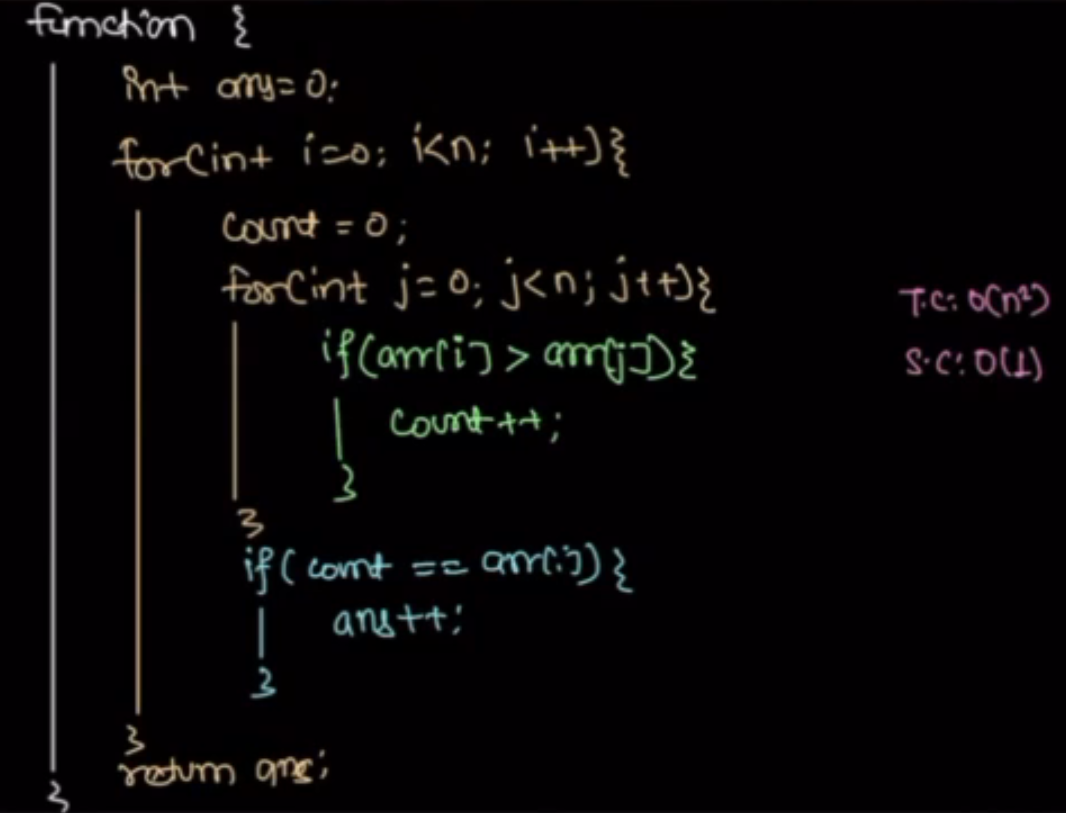 function {
int ans=0;
for(int i=0; i<n; i++){
count = 0;
for(int j=0; j<n; j++){
if(arr[i] > arr[j]){
count++;
}
}
if( count == arr[i]){
ans++;
}
}
return ans;
}
T.C: O(n²)
S.C: O(1)